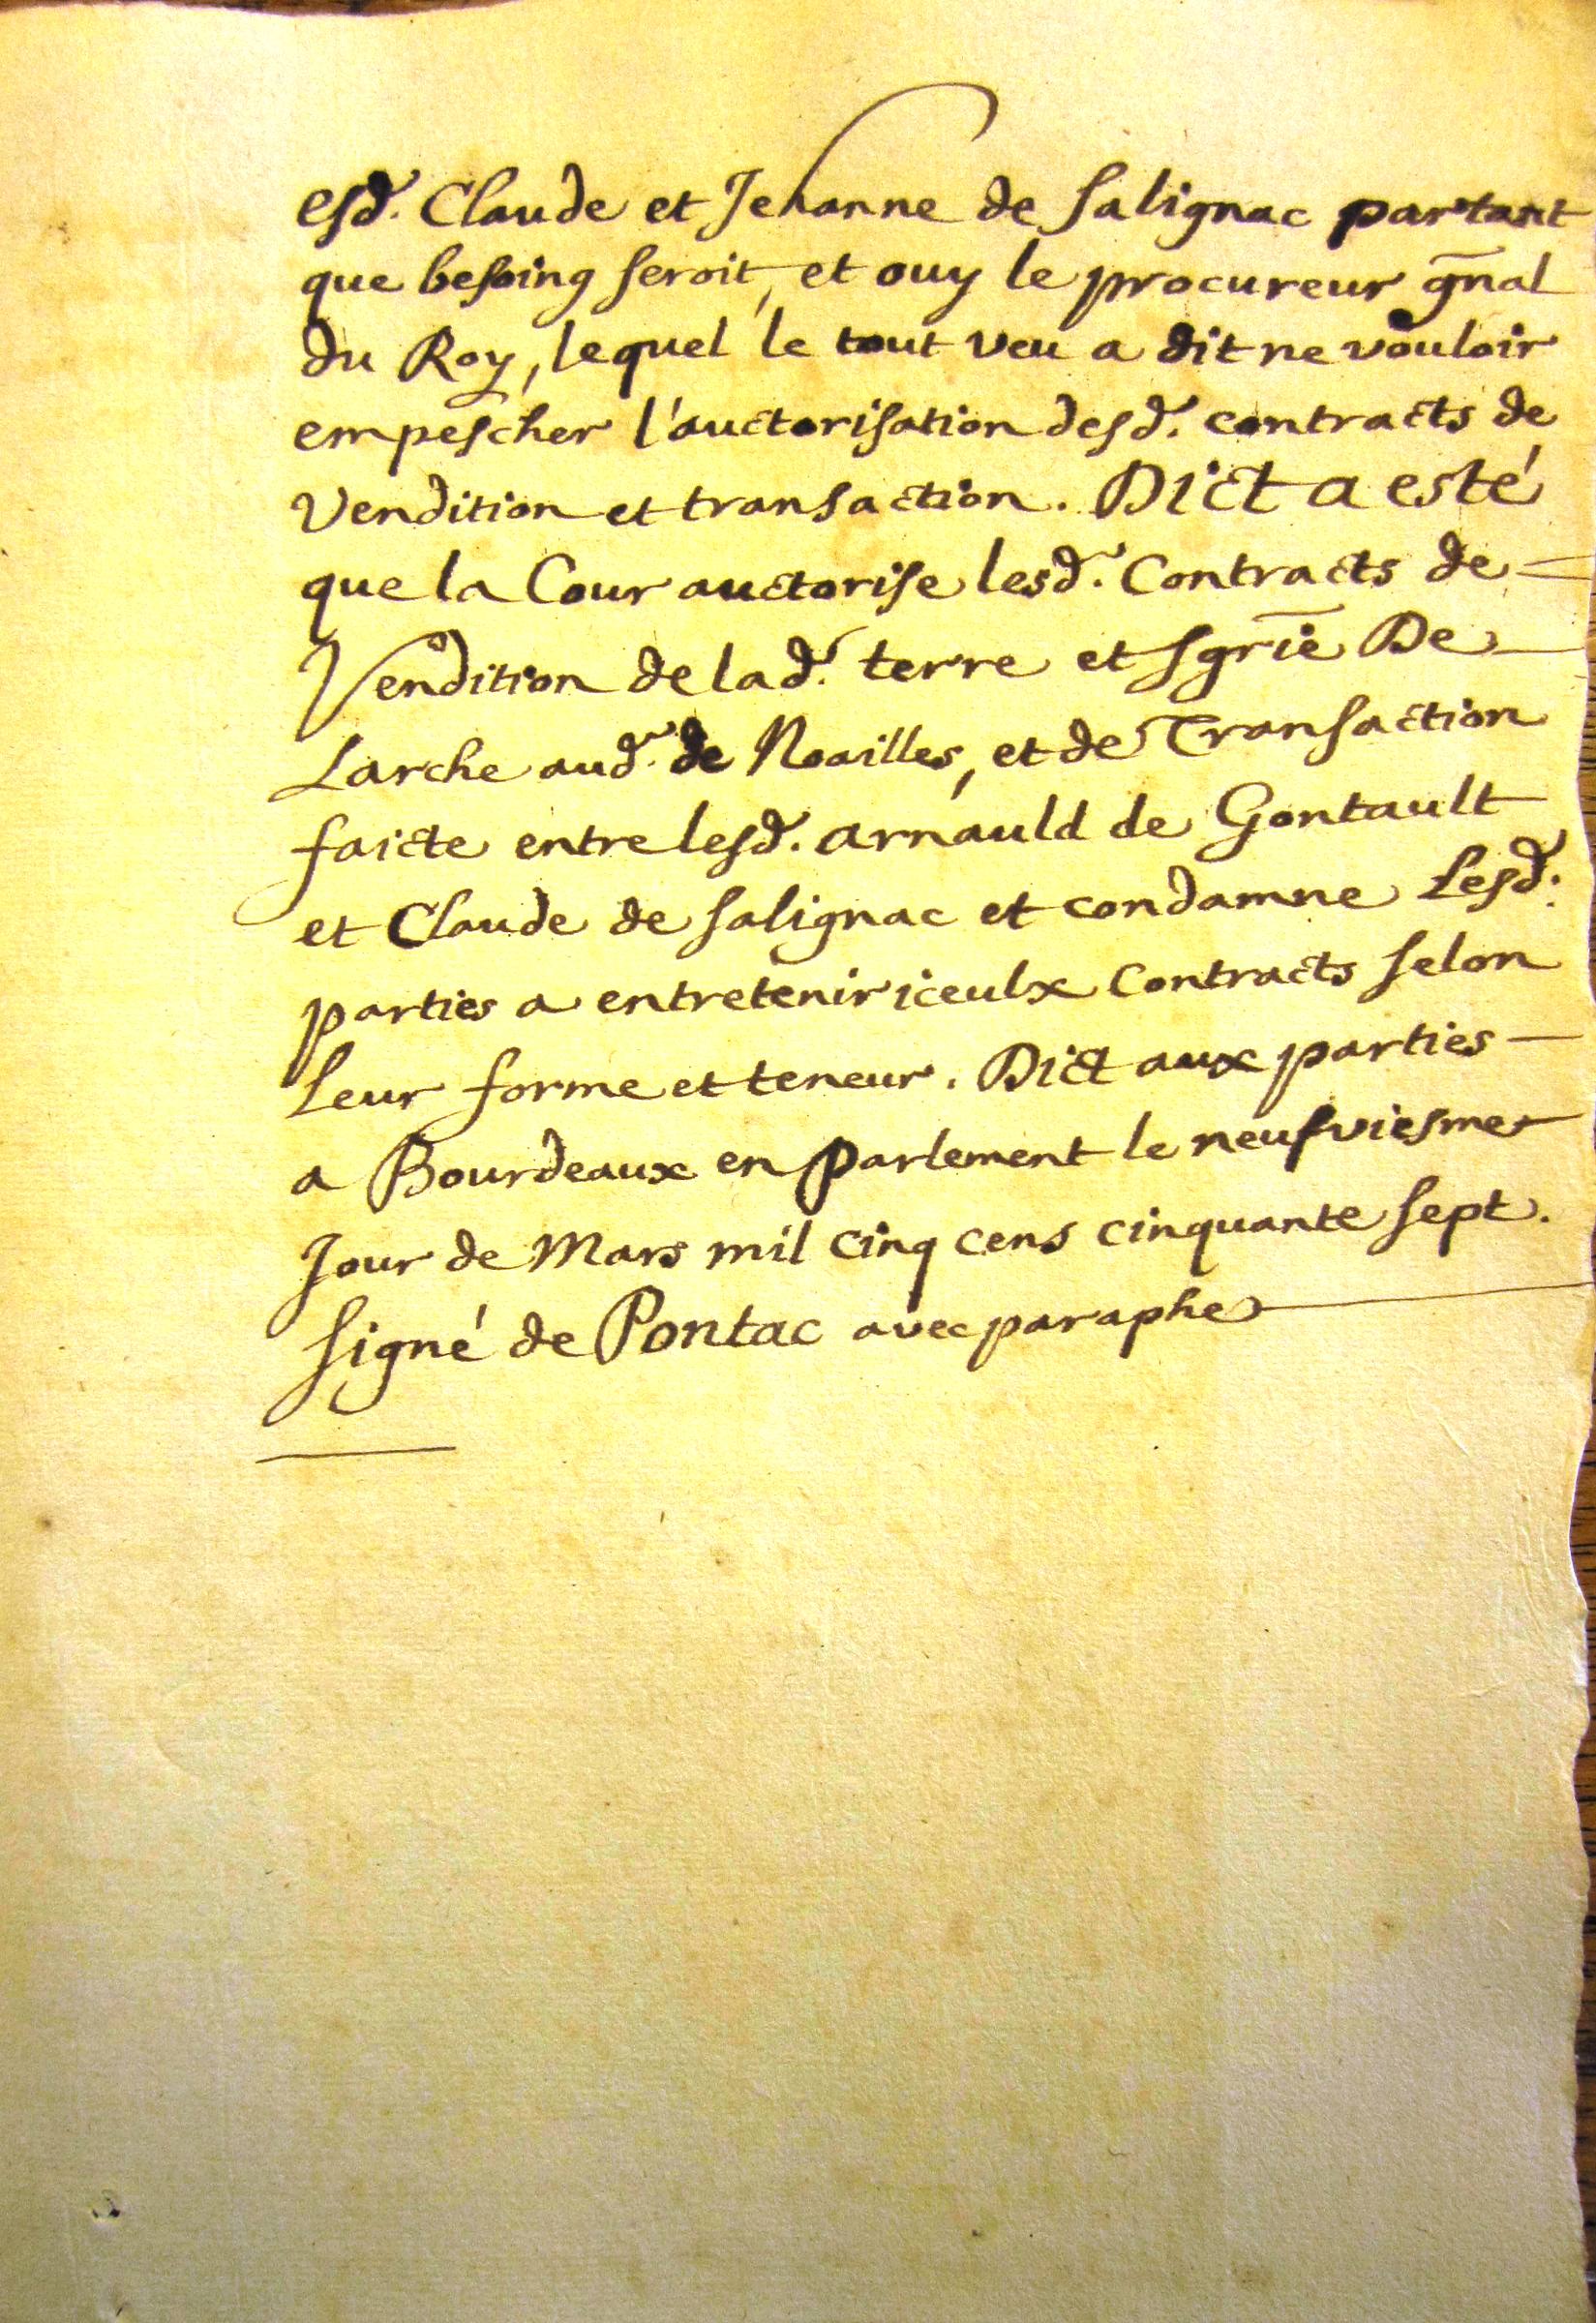 esd. Claude et Jehanne de Salignac partant
que besoing seroit, et ouy le procureur gñal
du Roy, lequel le tout veu a dit ne vouloir
empescher l'auctorisation desd. contracts de
Vendition et transaction. Dict a esté
que la Cour auctorise lesd. Contracts de
Vendition de lad. terre et sgrie De
Larche aud. de Noailles, et de Transaction
faicte entre lesd. arnauld de Gontault
et Claude de Salignac et condamne Lesd.
parties a entretenir iceulx Contracts selon
Leur forme et teneur. Dict aux parties
a Bourdeaux en Parlement le neufviesme
Jour de Mars mil cinq cens cinquante sept.
Signé de Pontac avec paraphe